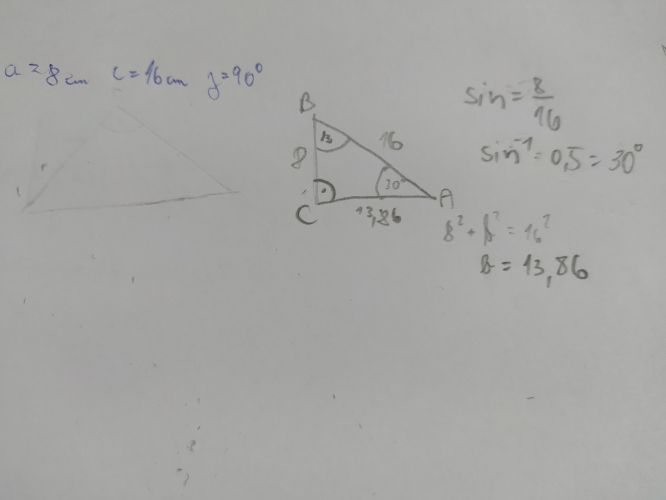 a = 8 cm c = 16 cm γ = 90°
B
16
8
30°
C
A
13,86
sin = 8/16
sin⁻¹ = 0,5 = 30°
8² + b² = 16²
b = 13,86